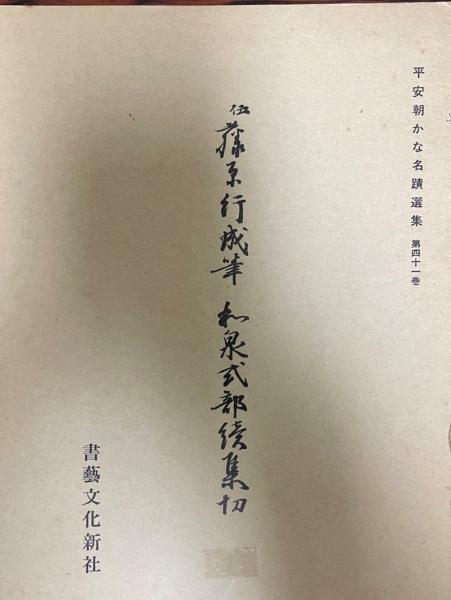 平安朝かな名蹟選集 第四十一巻
伝藤原行成筆 和泉式部續集切
書藝文化新社